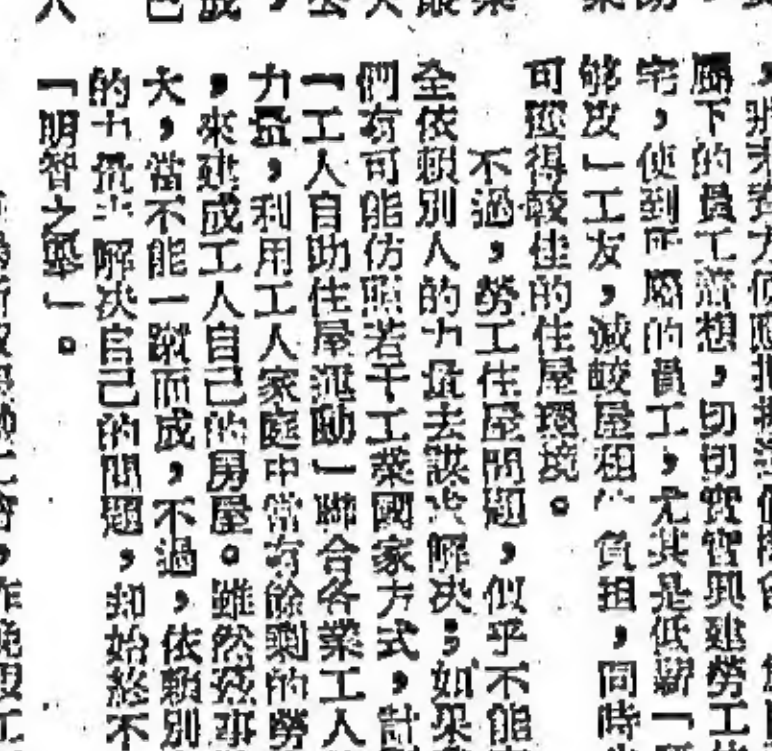 屬下的員工着想，切切實實興建勞工
宅，使到所屬的員工，尤其是低薪「
够資」工友，減輕屋租的負担，同時
可獲得較佳的住屋環境。
不過，勞工住屋問題，似乎不能
全依賴別人的力量去謀求解决；如果
們有可能仿照若干工業國家方式，計
「工人自助住屋運動」聯合各業工人
力量，利用工人家庭中常有餘剩的勞
，來建成工人自己的房屋。雖然茲事
大，當不能一蹴而成，不過，依賴別
的力量去解决自己的問題，却始終不
「明智之舉」。